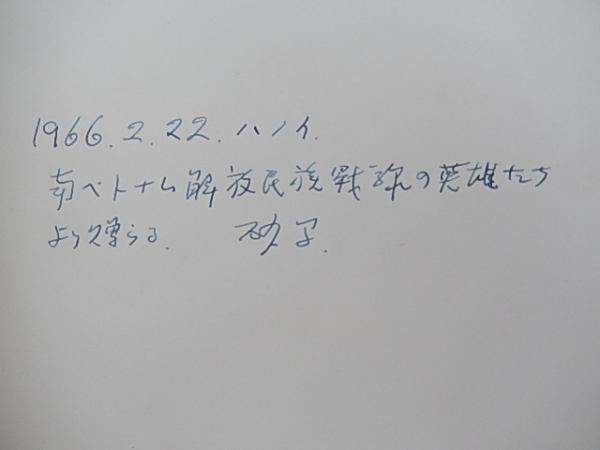 1966.2.22.ハノイ.
南ベトナム解放民族戰線の英雄たち
より贈らる. 砂子.